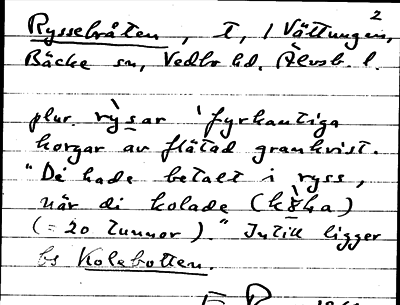 2
Rysselråten, t, i Vättungen,
Bäcke sn, Vedbo hd. Älvsb. l.
plur. ryssar 'fyrkantiga
korgar av flätad grankvist.
"De hade betalt i ryss,
när di kolade (
(= 20 tunnor)." Intill ligger
bs Kolebotten.